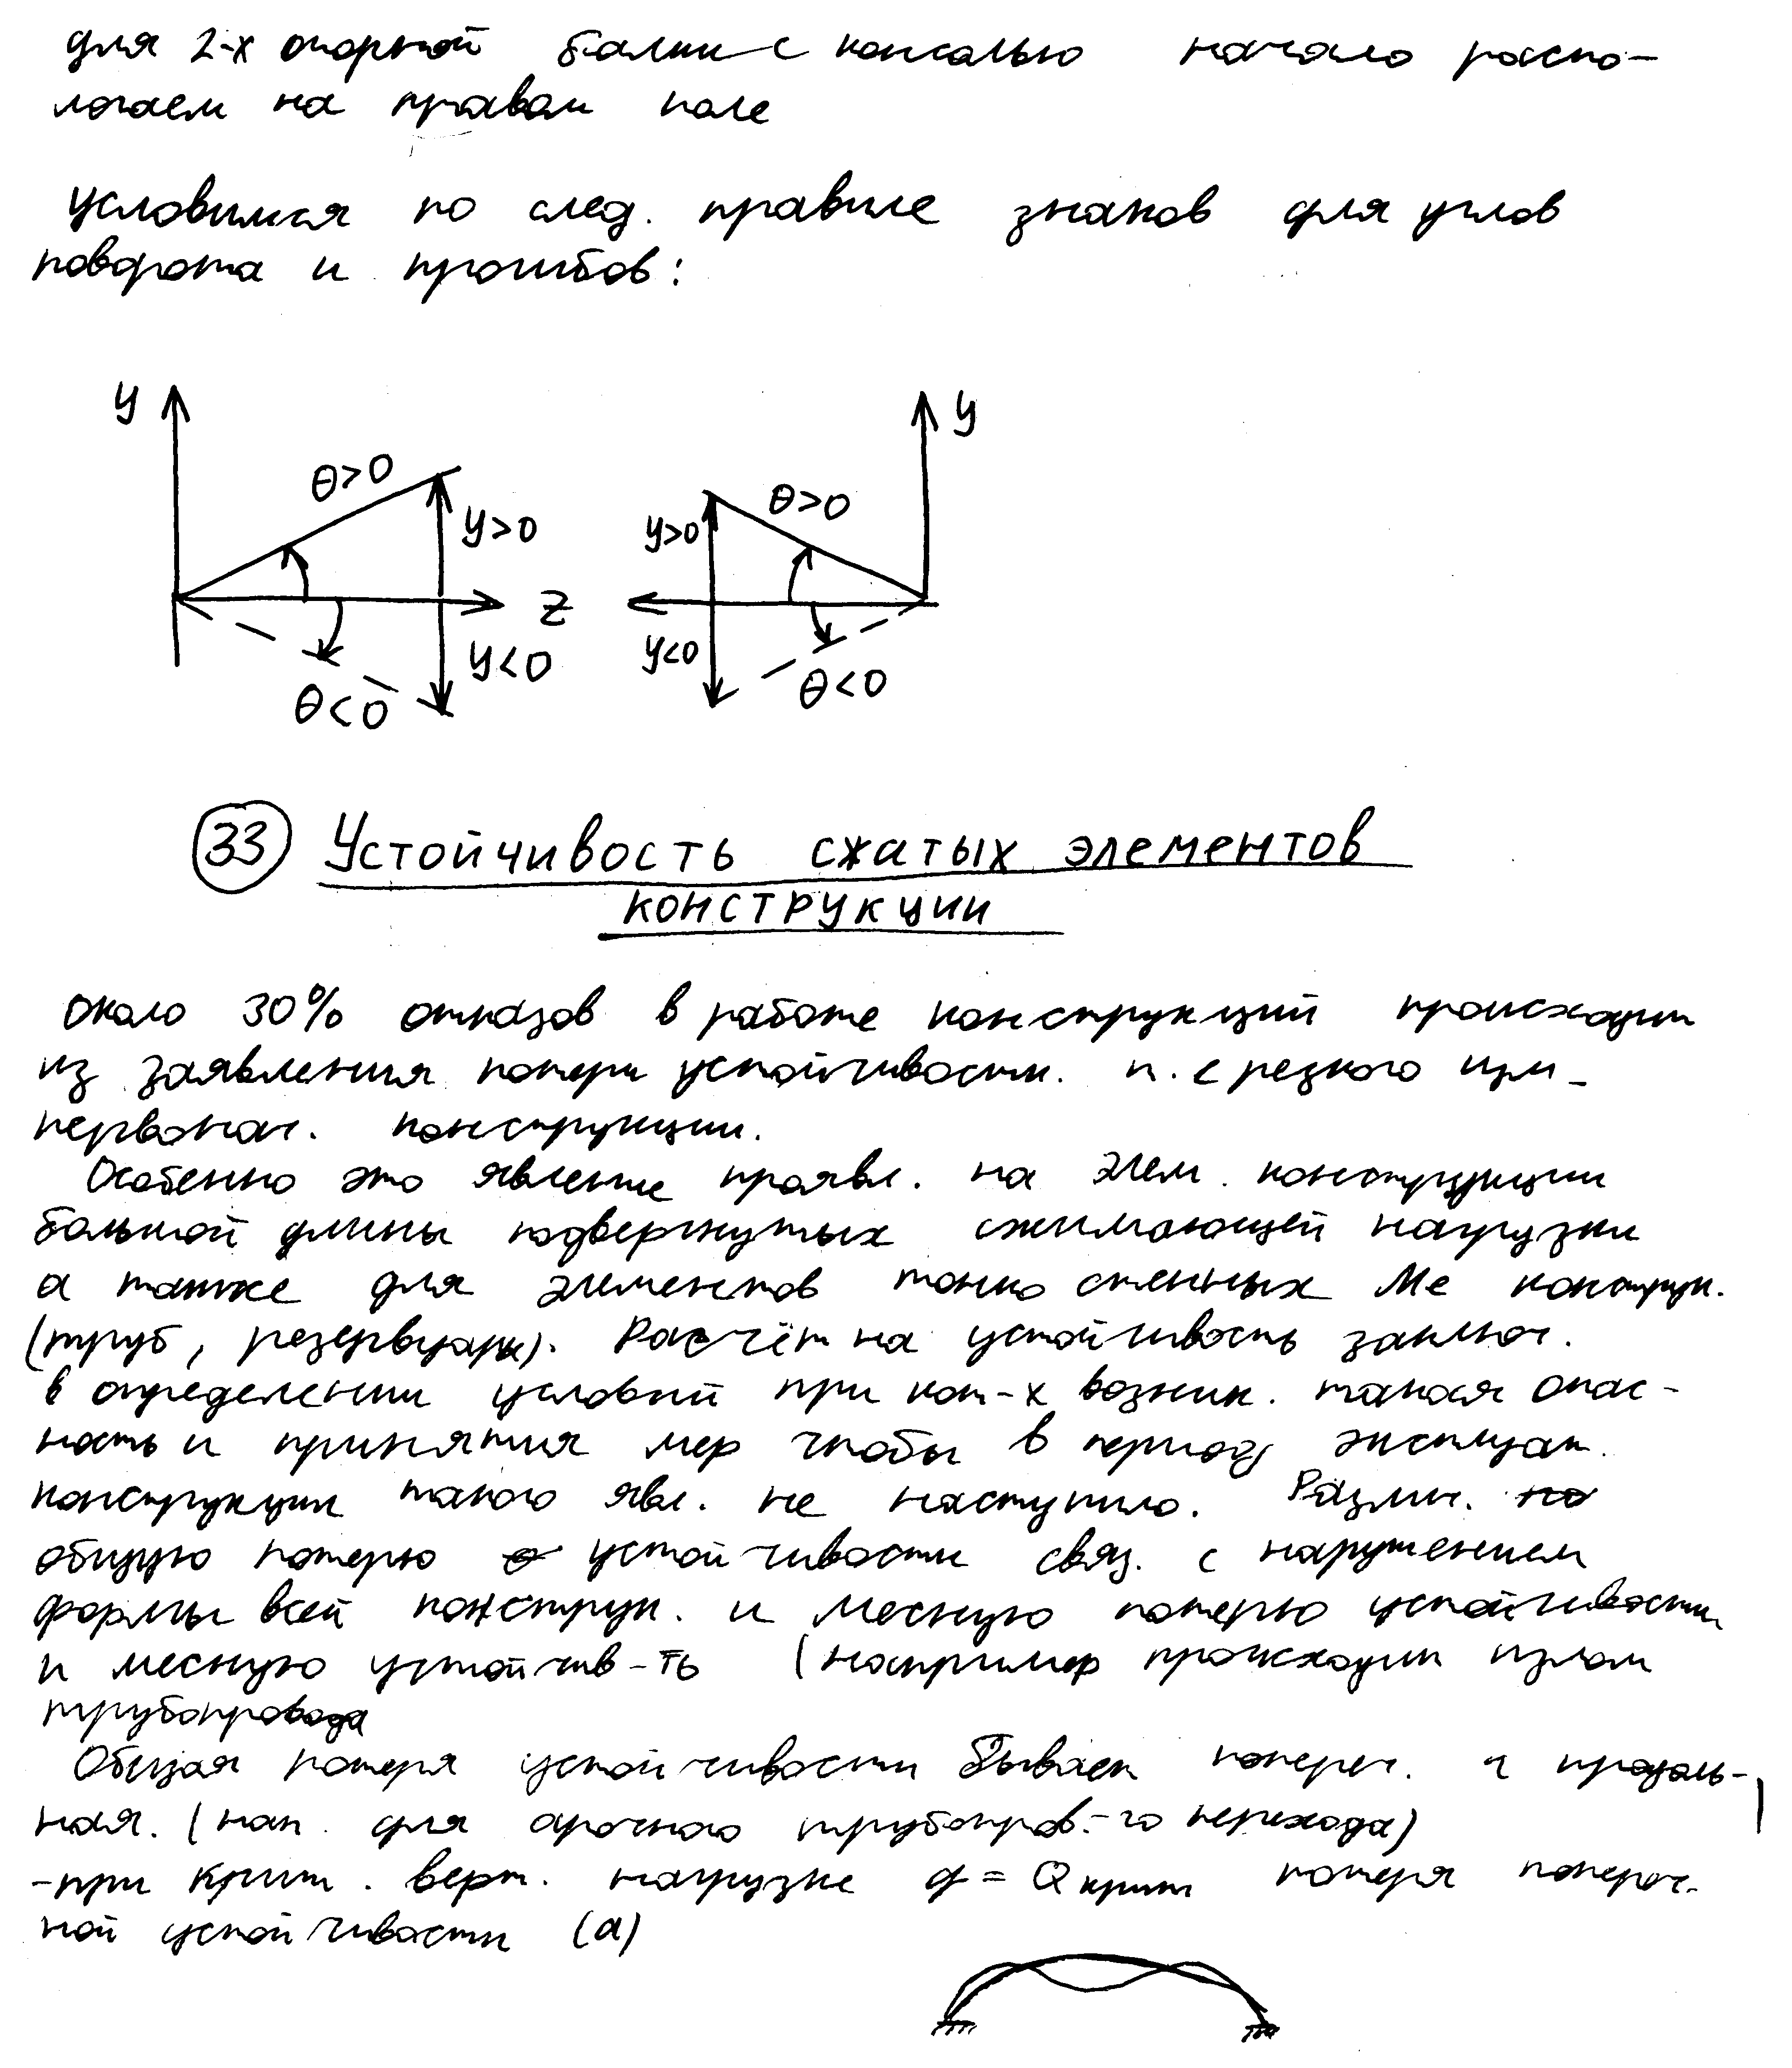 для 2-х опорной балки с консолью начало распо-
логаем на правом поле
условимся по след. правиле знаков для углов
поворота и прогибов:
y
y
θ>0
θ>0
y>0
y>0
z
y<0
y<0
θ<0
θ<0
33 Устойчивость сжатых элементов
конструкции
Около 30% отказов в работе конструкций происходит
из заявления потери устойчивости. т.е резкого
первонач. конструкции.
Особенно это явление проявл. на элем. конструкции
большой длины подвергнутых сжимающей нагрузки
а также для элементов тонко стенных Ме конструк.
(труб, резервуары). Расчёт на устойчивость заключ.
в определении условий при кот-х возник. такая опас-
ность и принятия мер чтобы в период эксплуат.
конструкции такого явл. не наступило. Различ.
общую потерю устойчивости связ. с нарушением
формы всей конструк. и месную потерю устойчивости
и месную устойчив-ть (например происходит излом
трубопровода
Общая потеря устойчивости бывает попереч. и продоль-
ная. (нап. для арочного трубопров.-го перехода)
-при крит. верт. нагрузке q = Q крит потеря попереч-
ной устойчивости (а)